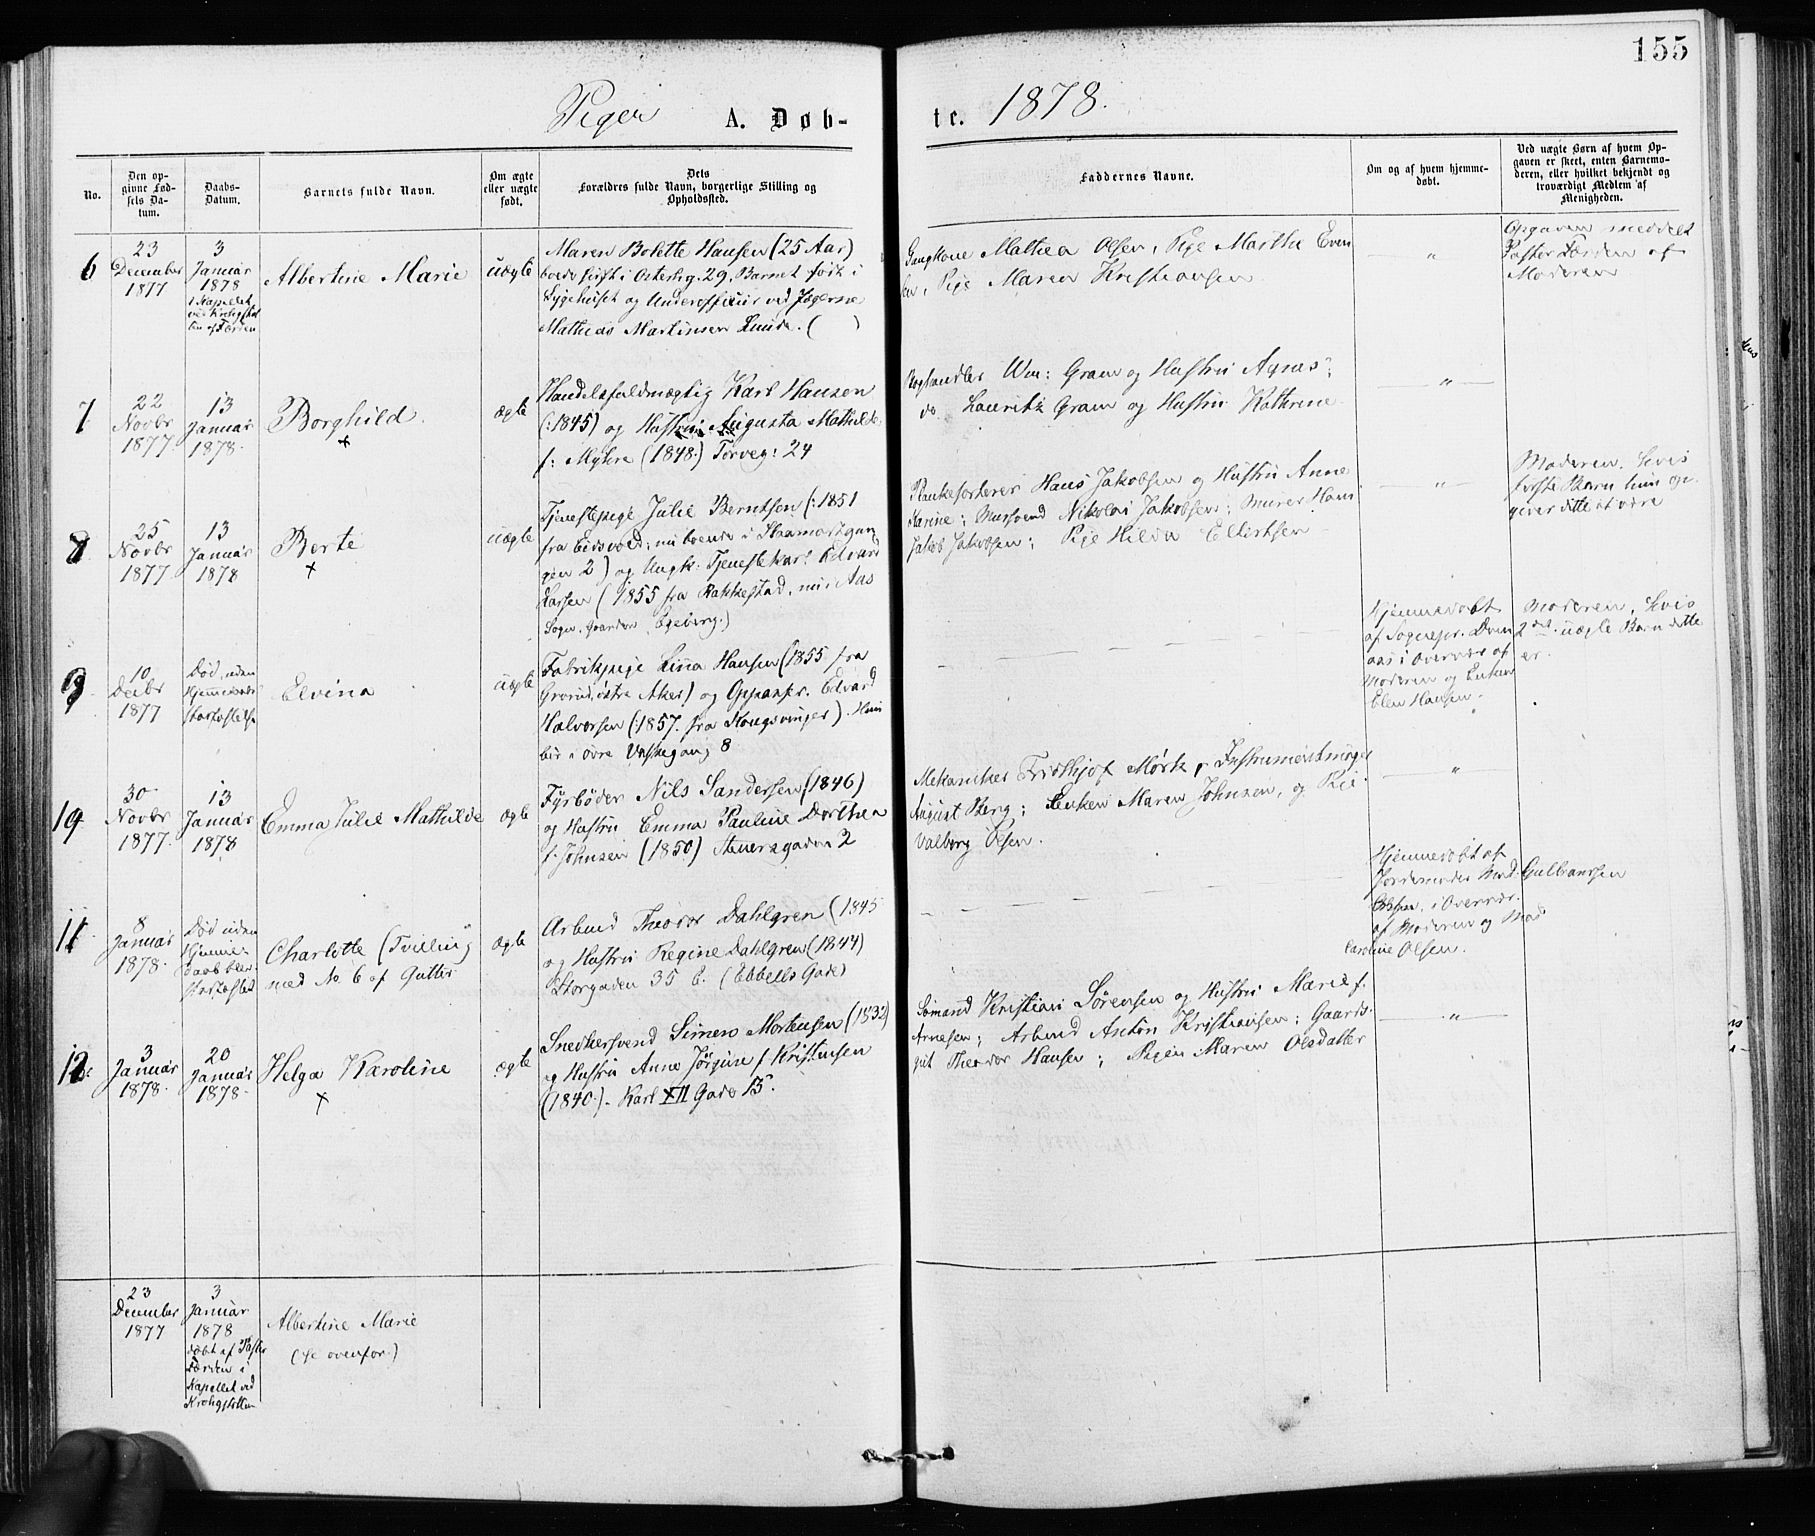 155
Piger A. Døb-
te. 1878.
No.
Den op-
givne Fød-
sels Da-
tum.
Daabs-
Datum.
Barnets fulde Navn.
Om ægte
eller uægte
født.
Dets
Forældres fulde Navn, borgerlige Stilling og
Opholdssted.
Faddernes Navne.
Om og af hvem hjemme-
døbt.
Ved uægte Børn af hvem Op-
gaven er skeet, enten Barnemo-
deren, eller hvilket bekjendt og
troværdigt Medlem af
Menigheden.
6
23
December
1877
3
Januar
1878
i Kapellet
ved Krohgstøt-
ten af Færden
Albertine Marie
uægte
Maren Bolette Hansen (25 Aar)
boede sidst i Osterhg. 29, Barnet født i
Sygehuset og Underofficier ved Jægerne
Mathias Martinsen Lunde. ( )
Gangkone Mathea Olsen, Pige Marthe Even
sen, Pige Maren Kristiansen
"
Opgaven meddelt
Pastor Færden af
Moderen
7
22
Novbr
1877
13
Januar
1878
Borghild
x
ægte
Handelsfuldmægtig Karl Hansen
(:1845) og Hustru Augusta Mathilde
f: Myhre (1848.) Torveg: 24
Boghandler Wm: Gram og Hustru Agnes;
do. Lauritz Gram og Hustru Kathrine
"
8
25
Novbr
1877
13
Januar
1878
Berte
x
uægte
Tjenestepige Julie Berntsen (:1851
fra Eidsvold, nu boende i Haamansgan
gen 2) og Ungk: Tjenestekarl Edvard
Larsen (1855 fra Rakkestad, nu i Aas
Sogn, Gaarden Egeberg.)
Plankesorterer Hans Jakobsen og Hustru Anne
Karine; Mursvend Nikolai Jakobsen; Murer Hans
Jakob Jakobsen; Pige Hilda Ellertsen
"
Moderen, hvis
første Barn hun op
giver dette at være
9
10
Decbr
1877
Død, uden
Hjemmedøbt
Stadfæstelse
Elvina
uægte
Fabrikpige Lina Hansen (1855 fra
Grorud, østre Aker) og Oppasser Edvard
Halvorsen (:1857. fra Kongsvinger). Hun
bor i øvre Vaskegang 8
Hjemmedøbt
af Sognepr. Dven
aas i Overvær af
Moderen og Enken
Elen Hansen.
Moderen, hvis
2det uægte Barn dette
er.
10
30
Novbr
1877
13
Januar
1878
Emma Julie Mathilde
ægte
Fyrbøder Nils Sandersen (1846)
og Hustru Emma Pauline Dorthea
f. Johnsen (1850) Steners gaden 2
Mekaniker Fridthjof Mørk, Instrumentmager
August Berg; Enken Maren Johnsen, og Pige
Valborg Olsen.
"
11
8
Januar
1878.
Død uden
Hjemme-
daab blev
stadfæsted
Charlotte (Tvilling
med No 6 af Gutter
ægte
Arbmd Theodor Dahlgren (1845
og Hustru Regine Dahlgren (1844)
Storgaden 35 E. (Ebbells Gade)
Hjemmedøbt af
Jordemoder Mad. Gulbranssen
i Overvær
af Moderen og Mad
Caroline Olsen.
12
3
Januar
1878.
20
Januar
1878.
Helga Karoline
x
ægte
Snedkersvend Simen Mortensen (1832)
og Hustru Anne Jørgine f. Kristensen
(1840.) Karl XII Gade 15.
Sømand Kristian Sørensen og Hustru Marie f.
Arnesen; Arbmd Anton Kristiansen; Gaards-
gut Theodor Hansen; Pigen Maren Olsdatter
"
23
December
1877
3
Januar
1878
døbt af Pastor
Færden i
Kapellet ved
Krohgstøtten
Albertine Marie
(se ovenfor.)